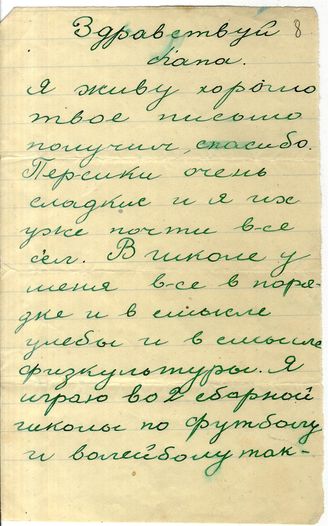 Здравствуй 8
папа.
Я живу хорошо
твое письмо
получил, спасибо.
Персики очень
сладкие и я их
уже почти все
ел. В школе у
меня все в поря-
дке и в смысле
учебы и в смысле
физкультуры. Я
играю во 2 сборной
школы по футболу
и волейболу так-